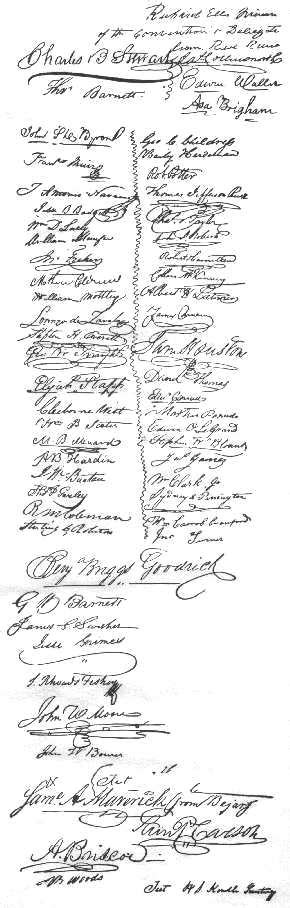 Richard Ellis
of the Convention & Delegate
from Red River
Charles B Stewart
Thos Barnett
Edwin Waller
Asa Brigham
John S D Byrom
J Antonio Navarro
Wm D Lacy
William Menefee
Jn. Fisher
William Mottley
Lorenzo de Zavala
Stephen H. Everitt
Elijah Stapp
Claiborne West
Wm B Scates
M. B. Menard
A B Hardin
J. W. Bunton
R. M. Coleman
Sterling C. Robertson
Geo C Childress
Baily Hardeman
Rob Potter
Thomas Jefferson Rusk
Robert Hamilton
Collin McKinney
Albert H Latimer
James Power
Sam Houston
David Thomas
Edwd Conrad
Martin Parmer
Edwin O. LeGrand
Stephen W. Blount
Jas Gaines
Wm Clark Jr
Sydney O Penington
Wm Carrol Crawford
Jno Turner
Benj Briggs Goodrich
G W Barnett
James G Swisher
Jesse Grimes
S. Rhoads Fisher
John W. Moore
John W Bower
Saml A. Maverick from Bejar
Sam P Carson
A. Briscoe
J B Woods
Test H S Kimble Secretary